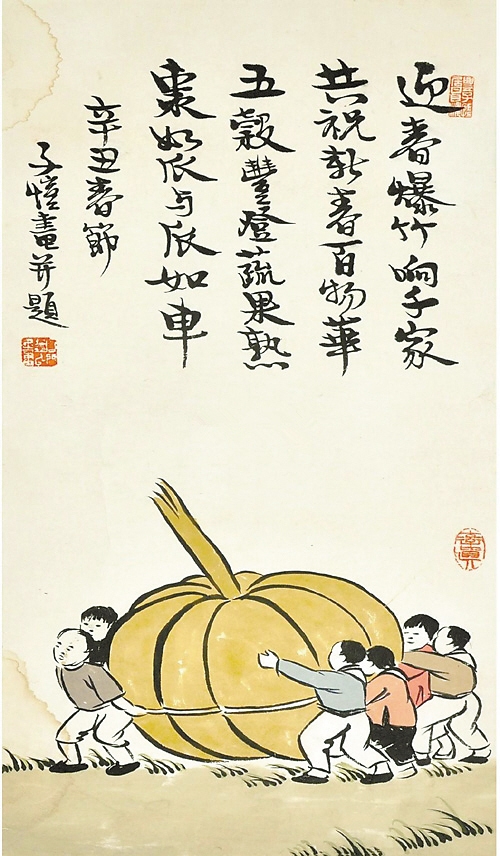 迎春爆竹响千家
共祝新春百物華
五穀豐登蔬果熟
棗如瓜与瓜如車
辛丑春節
子愷畫并題